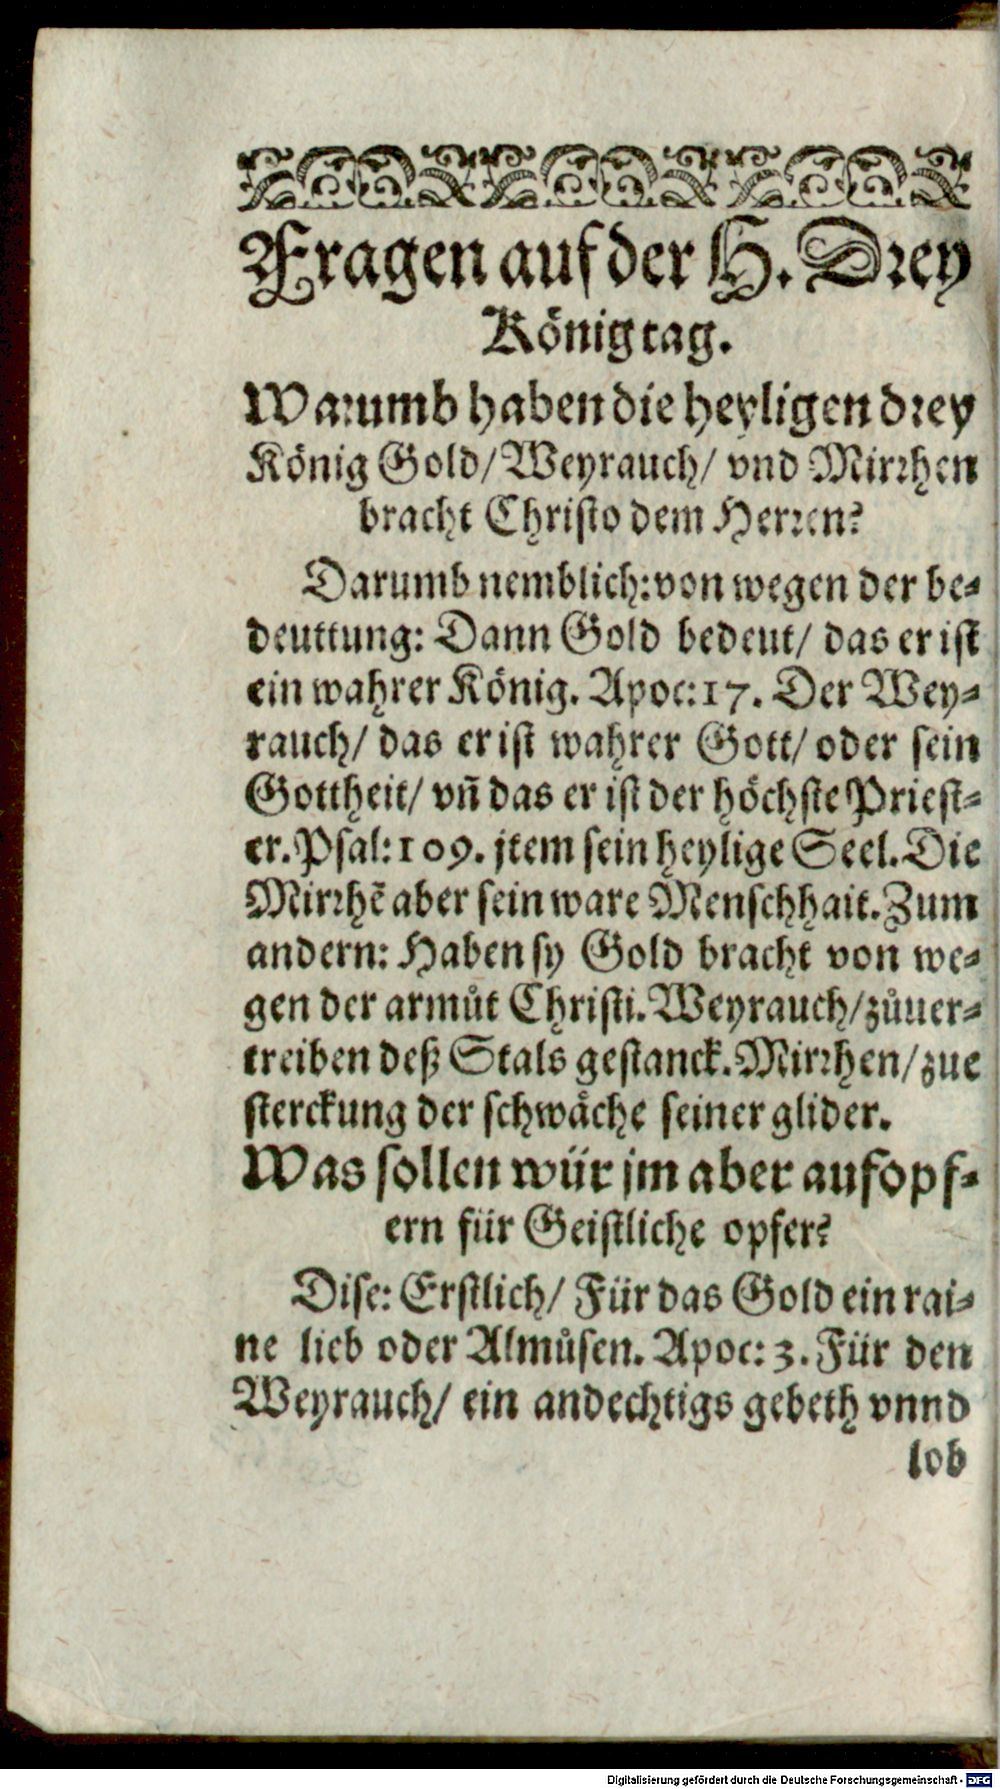 Fragen auf der H. Drey
König tag.
Warumb haben die heyligen drey
König Gold/ Weyrauch/ vnd Mirrhen
bracht Christo dem Herren?
Darumb nemblich: von wegen der be⸗
deuttung: Dann Gold bedeut/ das er ist
ein wahrer König. Apoc: 17. Der Wey⸗
rauch/ das er ist wahrer Gott/ oder sein
Gottheit/ vñ das er ist der höchste Priest⸗
er. Psal: 109. jtem sein heylige Seel. Die
Mirrhẽ aber sein ware Menschhait. Zum
andern: Haben sy Gold bracht von we⸗
gen der armůt Christi. Weyrauch/ zůuer⸗
treiben deß Stals gestanck. Mirrhen/ zue
sterckung der schwäche seiner glider.
Was sollen wür jm aber aufopf⸗
ern für Geistliche opfer?
Dise: Erstlich/ Für das Gold ein rai⸗
ne lieb oder Almůsen. Apoc: 3. Für den
Weyrauch/ ein andechtigs gebeth vnnd
lob
Digitalisierung gefördert durch die Deutsche Forschungsgemeinschaft - DFG